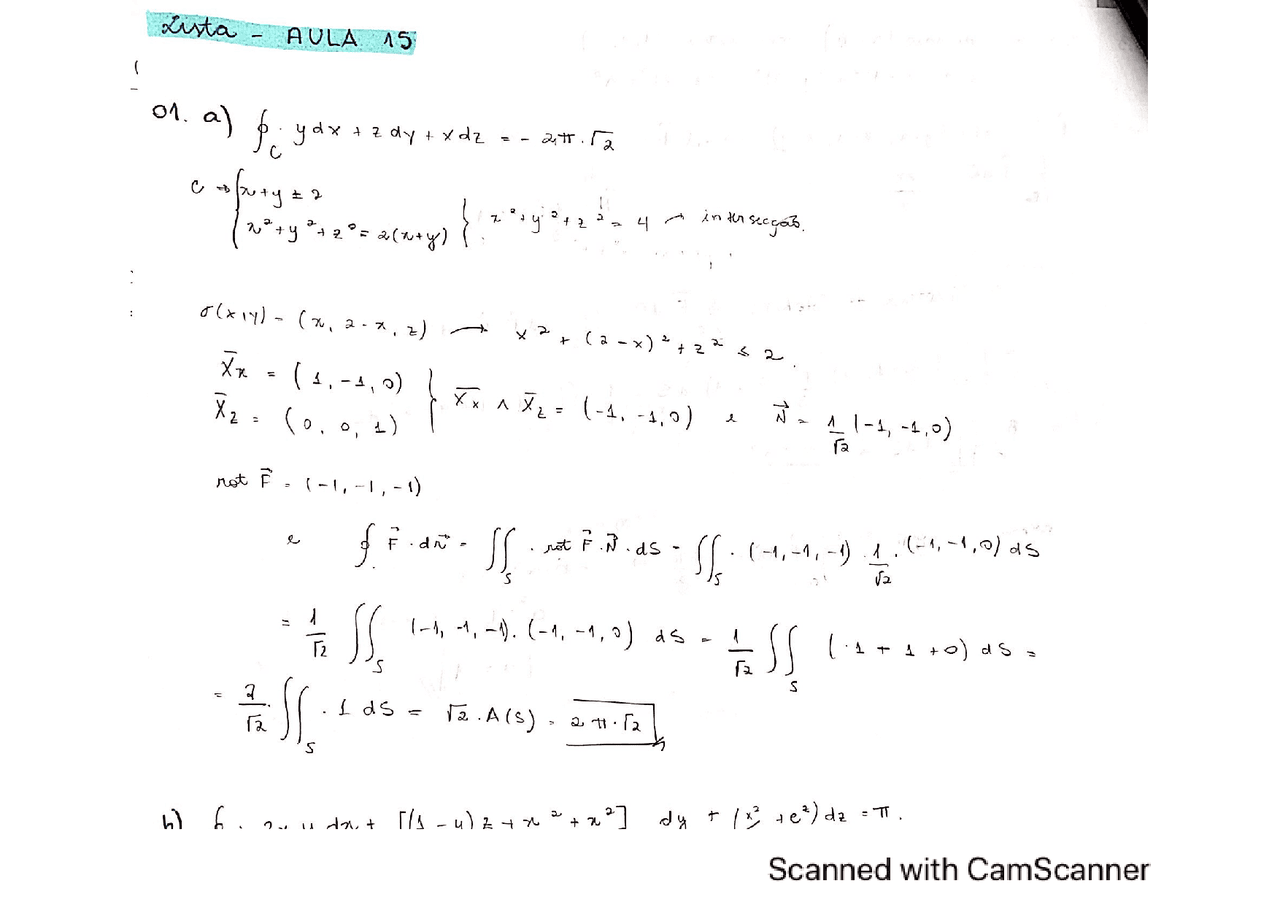 Lista - AULA 15
01. a) ∮_C y dx + z dy + x dz = - 2π.√2
C → { x + y = 2
x² + y² + z² = 2(x+y) } x² + y² + z² = 4 → intersecção.
σ(x,y) = (x, 2-x, z) → x² + (2-x)² + z² ≤ 2.
X̄x = (1, -1, 0)
X̄z = (0, 0, 1) } X̄x ∧ X̄z = (-1, -1, 0) e N⃗ = 1/√2 (-1, -1, 0)
rot F⃗ = (-1, -1, -1)
e ∮ F⃗ . dr⃗ = ∬_S . rot F⃗ . N⃗ . dS = ∬_S . (-1, -1, -1) . 1/√2 . (-1, -1, 0) dS
= 1/√2 ∬_S (-1, -1, -1) . (-1, -1, 0) dS = 1/√2 ∬_S (1 + 1 + 0) dS =
= 2/√2 ∬_S . 1 dS = √2 . A(S) = 2π.√2
b) ∮ . 2x y dx + [(1 - y) z + x² + x²] dy + (x²/2 + e^z) dz = π.
Scanned with CamScanner